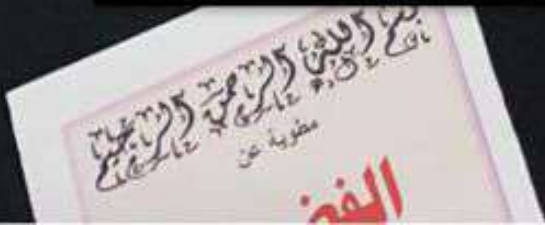 بسم الله الرحمن الرحيم
مطوية عن